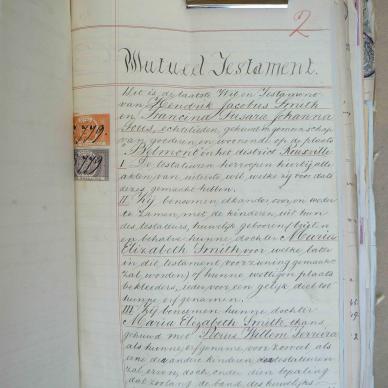 2
Mutueel Testament.
Dit is de laatste Wil en Testament
van Hendrik Jacobus Smith
en Francina Susara Johanna
echtelieden, gehuwd in gemeenschap
van goederen en woonende op de plaats
Belmont in het district Rouxville
I De testateuren herroepen hierbij alle
akten van uiterste wil welke zij voor dato
dezes gemaakt hebben.
779
779
II Zij benoemen elkander over en weder
te zamen, met de kinderen, uit hun
des testateurs, huwelijk geboren,
en behalve hunne dochter Maria
Elizabeth Smith voor welke, later
in dit testament, voorziening gemaakt
zal worden) of hunne wettige plaats
bekleeders, ieder voor een gelijk deel tot
hunne erfgenamen.
III Zij benoemen hunne dochter
Maria Elizabeth Smith, thans
gehuwd met Willem Ferreira
als hunne erfgenam voor zooveel als
een der andere kinderen des testateuren
zal erven, doch onder deze bepaling
dat zoolang de band des huwelijks